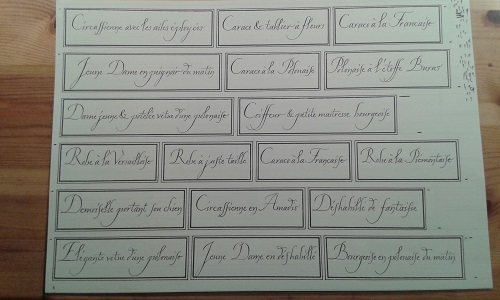 Circassienne avec les ailes Caraco & tablier à fleurs Caraco à la Francaise
Jeune Dame en peignoir du matin Caraco à la Polonaise Polonaise à l'étoffe Buras
Dame jeune & potelée vetue d'une polonaise Coiffeur & petite maitresse bourgeoise
Robe à la Versaillaise Robe à juste taille Caraco à la Française Robe à la Piémontaise
Demoiselle portant son chien Circassienne en Amadis Déshabille de fantaisie
Elégante vetue d'une polonaise Jeune Dame en déshabillé Bourgeoise en polonaise du matin